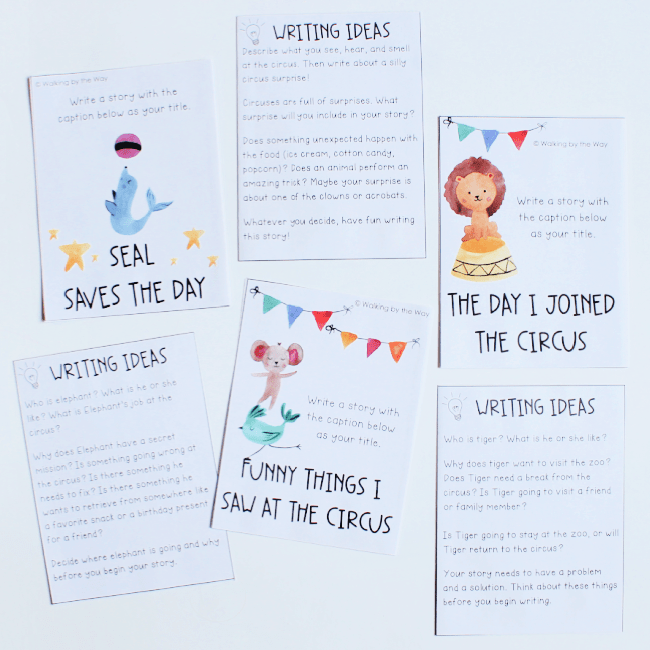 © Walking by the Way
Write a story with the
caption below as your title.
SEAL
SAVES THE DAY
WRITING IDEAS
Describe what you see, hear, and smell
at the circus. Then write about a silly
circus surprise!
Circuses are full of surprises. What
surprise will you include in your story?
Does something unexpected happen with
the food (ice cream, cotton candy,
popcorn)? Does an animal perform an
amazing trick? Maybe your surprise is
about one of the clowns or acrobats.
Whatever you decide, have fun writing
this story!
© Walking by the Way
Write a story with
the caption below
as your title.
THE DAY I JOINED
THE CIRCUS
WRITING IDEAS
Who is elephant? What is he or she
like? What is Elephant's job at the
circus?
Why does Elephant have a secret
mission? Is something going wrong at
the circus? Is there something he
needs to fix? Is there something he
wants to retrieve from somewhere like
a favorite snack or a birthday present
for a friend?
Decide where elephant is going and why
before you begin your story.
© Walking by the Way
Write a story with
the caption below
as your title.
FUNNY THINGS I
SAW AT THE CIRCUS
WRITING IDEAS
Who is tiger? What is he or she like?
Why does tiger want to visit the zoo?
Does Tiger need a break from the
circus? Is Tiger going to visit a friend
or family member?
Is Tiger going to stay at the zoo, or will
Tiger return to the circus?
Your story needs to have a problem
and a solution. Think about these things
before you begin writing.